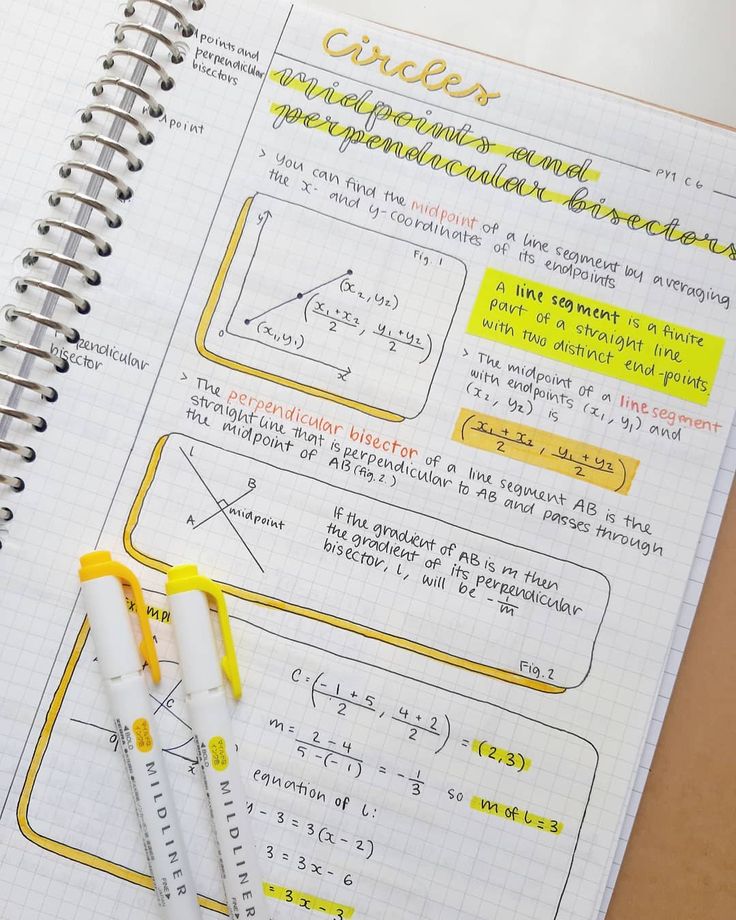 circles
midpoints and
perpendicular bisectors
PY1 C6
points and
perpendicular
bisectors
point
bisector
> you can find the midpoint of a line segment by averaging
the x- and y-coordinates of its endpoints
Fig. 1
y
(x₂, y₂)
(x₁ + x₂ / 2, y₁ + y₂ / 2)
(x₁, y₁)
0
x
A line segment is a finite
part of a straight line
with two distinct end-points.
> The midpoint of a line segment
with endpoints (x₁, y₁) and
(x₂, y₂) is
(x₁ + x₂ / 2, y₁ + y₂ / 2)
> The perpendicular bisector of a line segment AB is the
straight line that is perpendicular to AB and passes through
the midpoint of AB (fig. 2.)
l
B
A
midpoint
If the gradient of AB is m then
the gradient of its perpendicular
bisector, l, will be -1/m
Fig. 2
C
x
C = (-1 + 5 / 2, 4 + 2 / 2) = (2,3)
m = 2 - 4 / 5 - (-1) = -1/3 so m of l = 3
equation of l:
y - 3 = 3(x - 2)
3 = 3x - 6
= 3x - 3
BOLD MILDLINER FINE
BOLD MILDLINER FINE